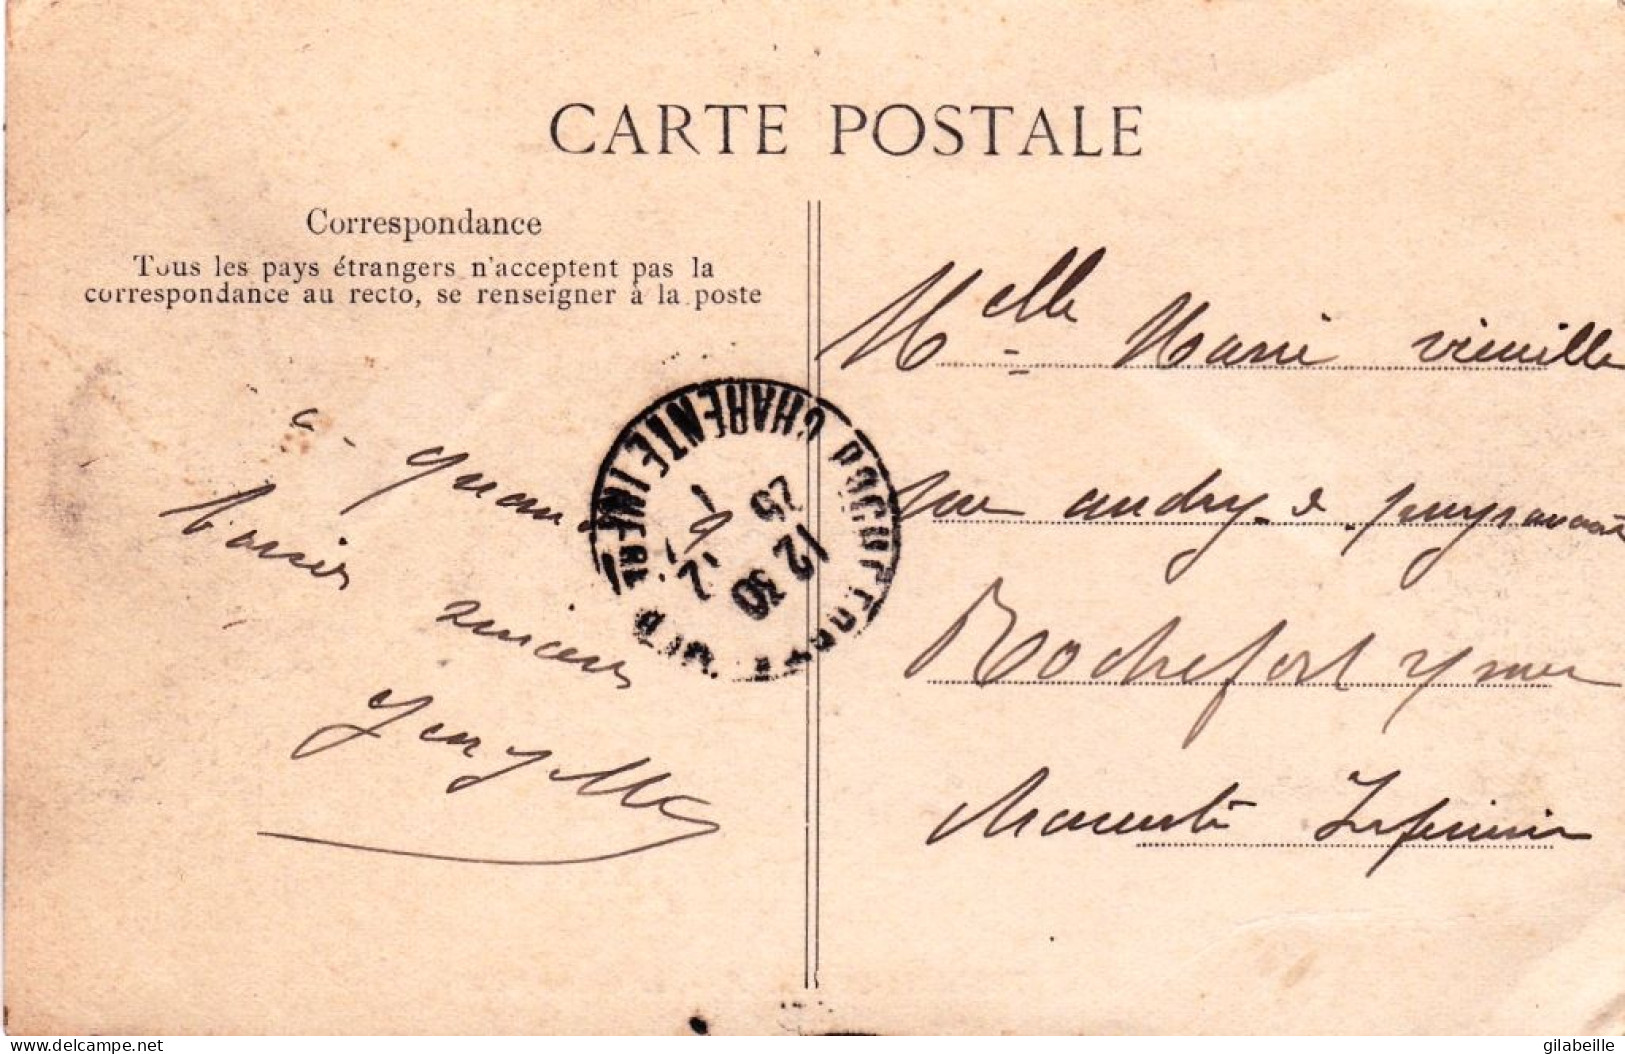 CARTE POSTALE
Correspondance
Tous les pays étrangers n'acceptent pas la
correspondance au recto, se renseigner à la poste
à quand
baisers
sincères
Melle Marie vieuille
rue audry de puyravault
Rochefort s/ mer
Charente Inférieure
ROCHEFORT S/ MER CHARENTE INFRE
12 30
25
1
delcampe.net
gilabeille